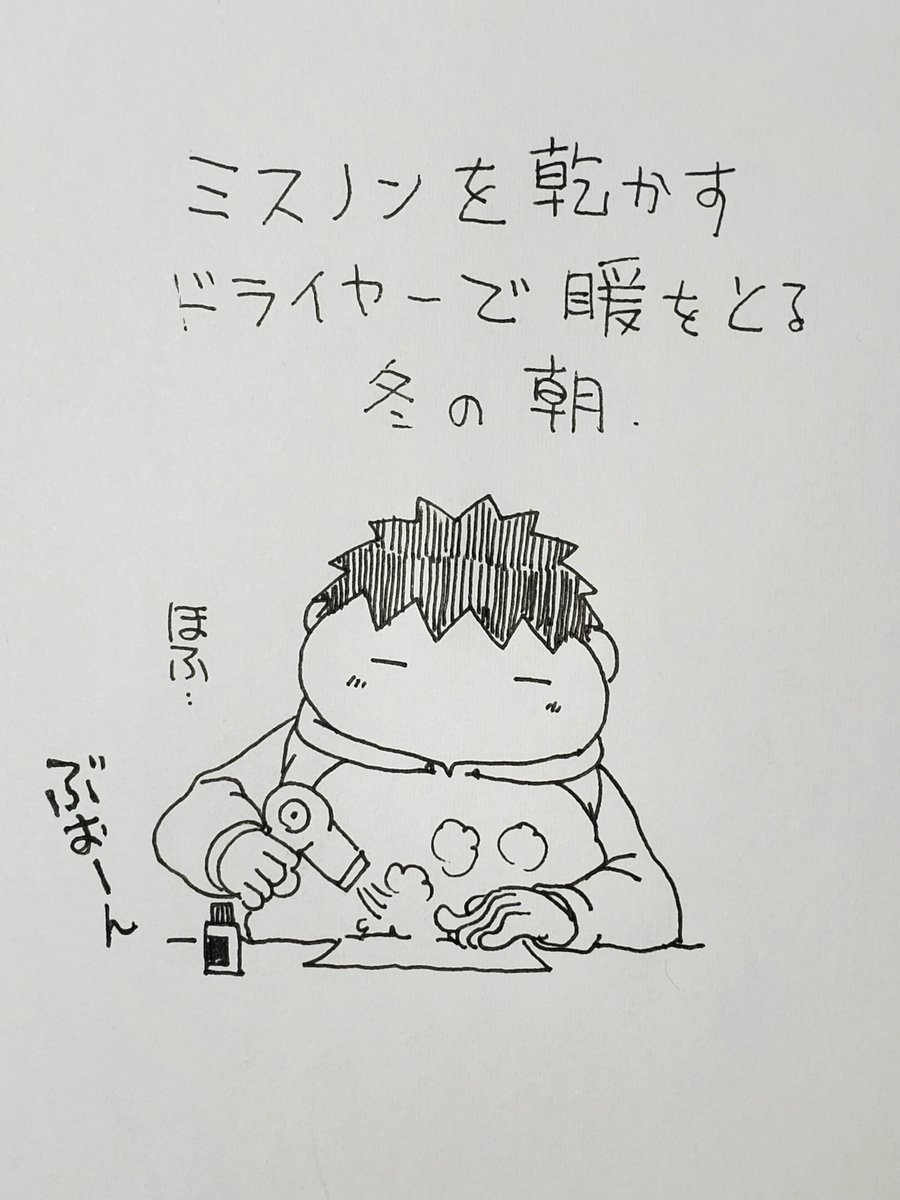 ミスノンを乾かす
ドライヤーで暖をとる
冬の朝.
ほふ…
ぶおーん